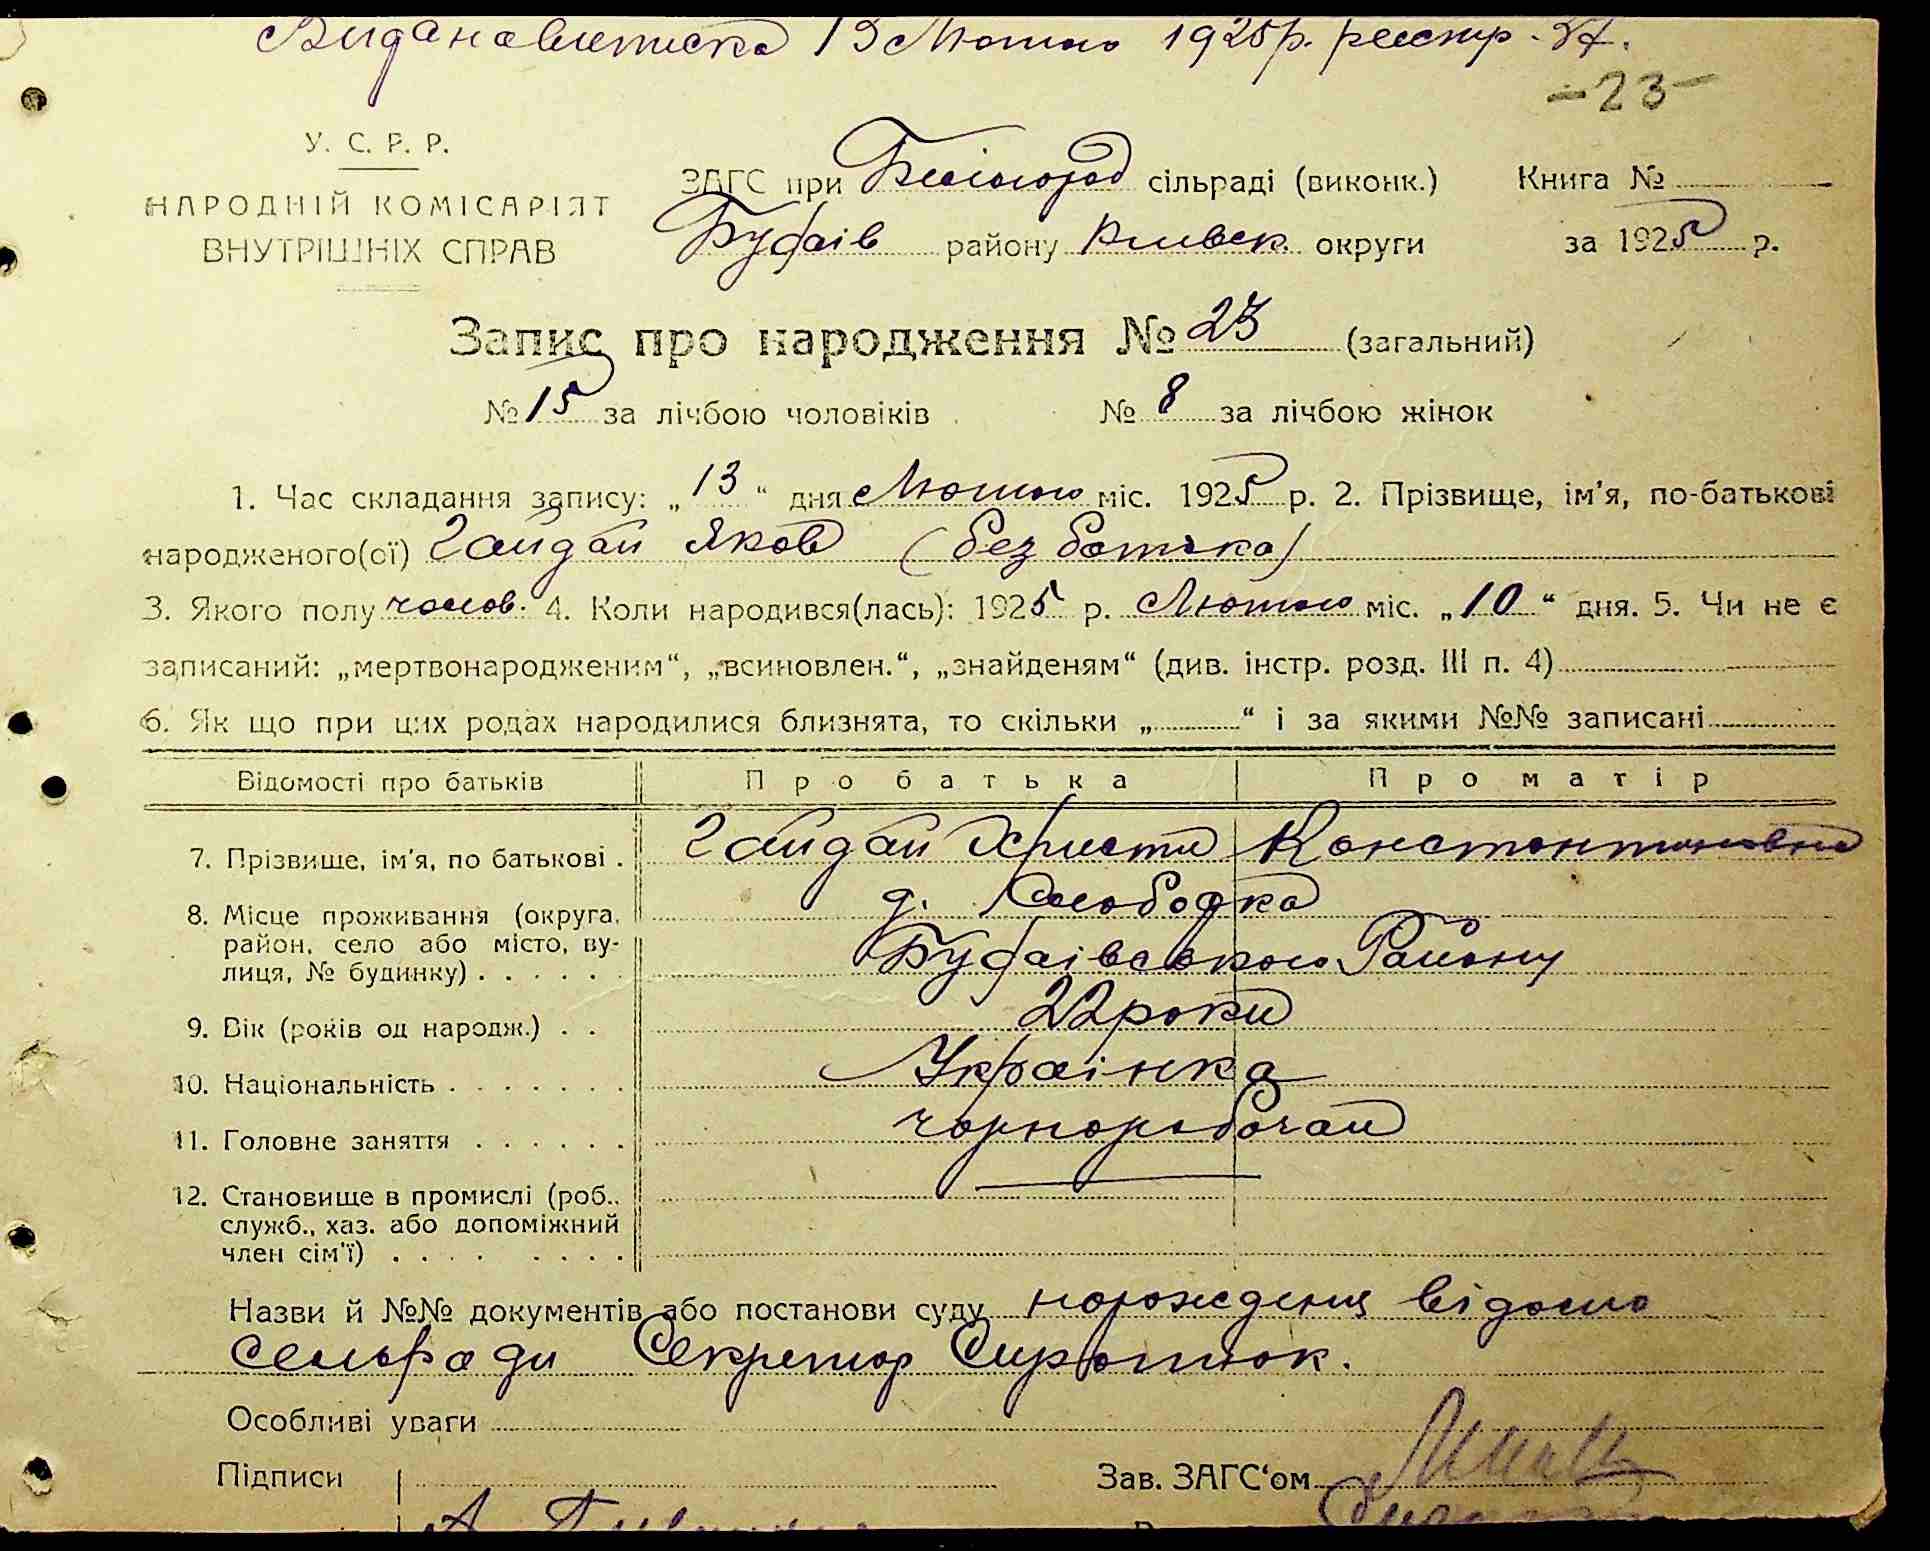 Видана виписка 13 Лютого 1925 р. реєстр. 
-23-
У. С. Р. Р.
НАРОДНІЙ КОМІСАРІЯТ
ВНУТРІШНІХ СПРАВ
ЗАГС при Білогород сільраді (виконк.) Книга №
Будаїв району Київськ. округи за 1925 р.
Запис про народження № 23 (загальний)
№ 15 за лічбою чоловіків № 8 за лічбою жінок
1. Час складання запису: „13“ дня Лютого міс. 1925 р. 2. Прізвище, ім'я, по-батькові
народженого(ої) Гайдай Яков (без батька)
3. Якого полу чолов. 4. Коли народився(лась): 1925 р. Лютого міс. „10“ дня. 5. Чи не є
записаний: „мертвонародженим“, „всиновлен.“, „знайденям“ (див. інстр. розд. III п. 4)
6. Як що при цих родах народилися близнята, то скільки „ “ і за якими №№ записані
Відомості про батьків Про батька Про матір
7. Прізвище, ім'я, по батькові . Гайдай Христя Константиновна
8. Місце проживання (округа, д. Слободка
район, село або місто, ву- Будаівського Району
лиця, № будинку) . . . . .
9. Вік (років од народж.) . . 22 роки
10. Національність . . . . . . . Украінка
11. Головне заняття . . . . . . чорноробочай
12. Становище в промислі (роб.,
служб., хаз. або допоміжний
член сім'ї) . . . . . . . .
Назви й №№ документів або постанови суду відомо
Сельради Секретар Сиротюк.
Особливі уваги
Підписи Зав. ЗАГС'ом